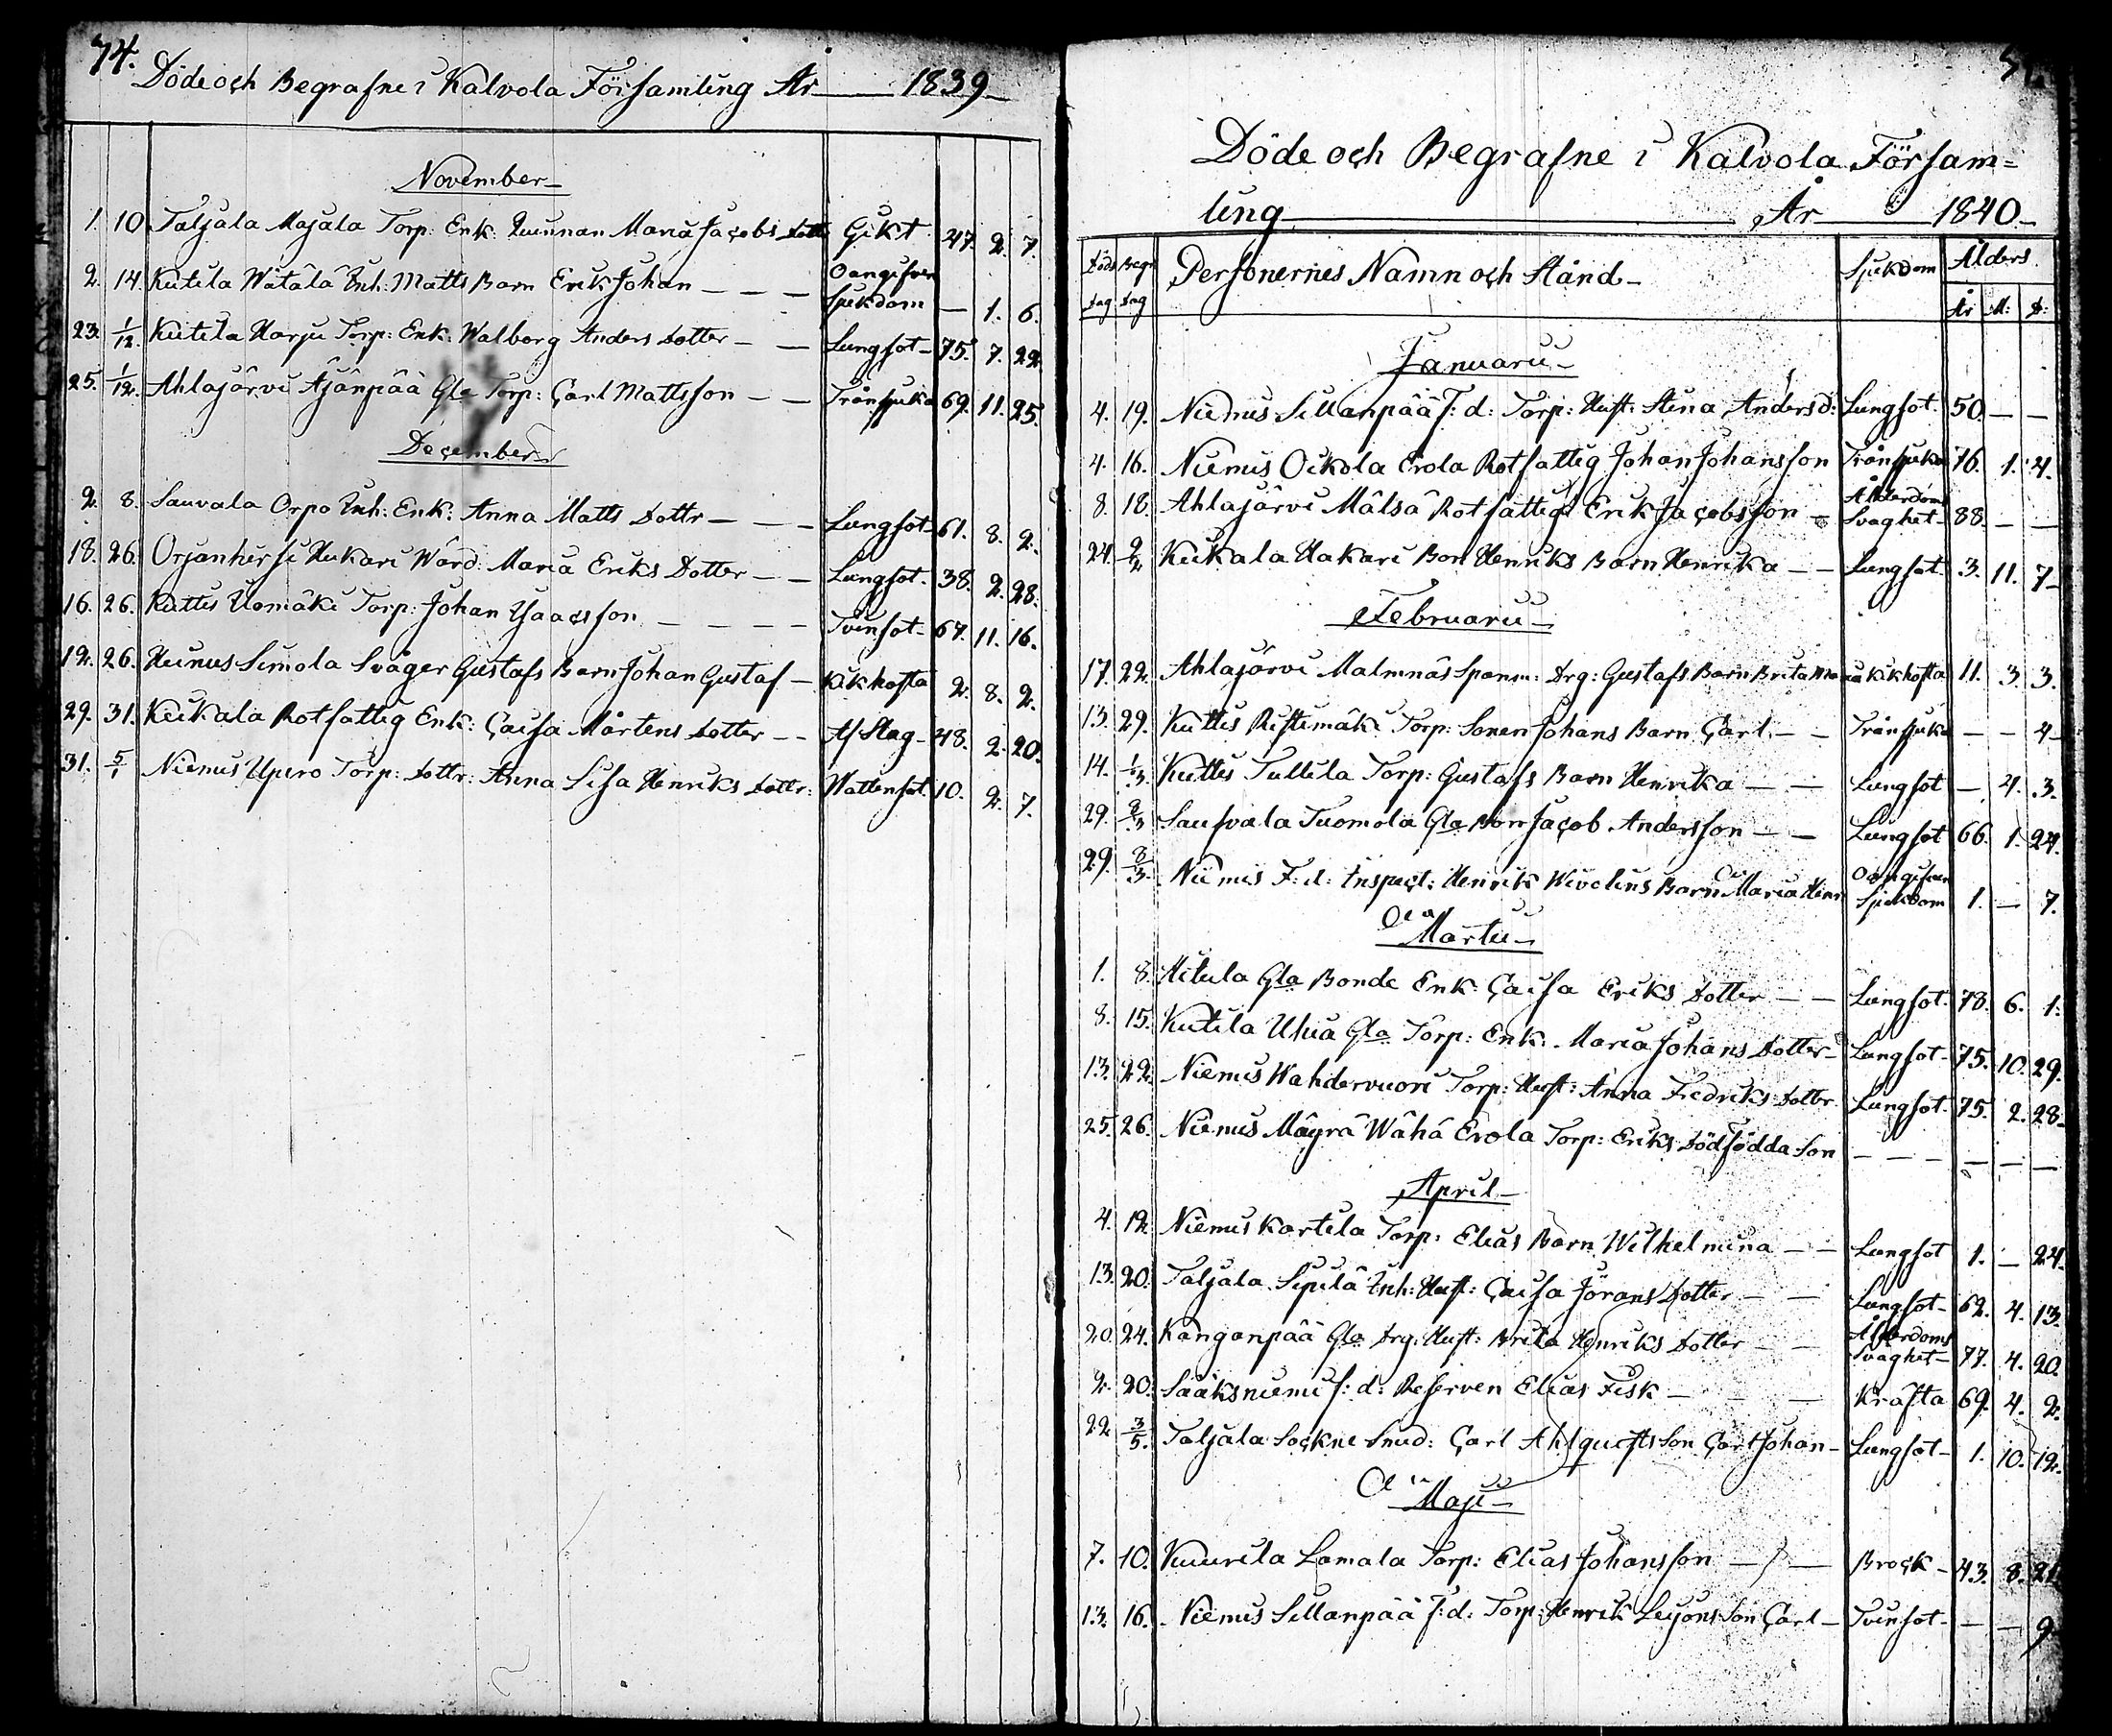 74.
Döde och Begrafne i Kalvola Församling År 1839
November
1. 10. Taljala Majala Torp: Enk: Quinnan Maria Jacobs Dottr Gikt 47. 2. 7.
2. 14. Kutila Wätälä Inh: Matts Barn Erik Johan — — — Oangifven Sjukdom — 1. 6.
23. 1/12. Kutila Harju Torp: Enk: Walborg Anders Dotter — — Lungsot 75. 7. 22.
25. 1/12. Ahlajärvi Äjänpää Gla Torp: Carl Mattsson — — Trånsjuka 69. 11. 25.
December
2. 8. Sauvala Orpo Inh: Enk: Anna Matts Dottr — — — Lungsot 61. 8. 2.
18. 26. Orjanhirsi Hukari Wärd: Maria Eriks Dotter — — Lungsot 38. 2. 28.
16. 26. Kuttis Uomäki Torp: Johan Isaacsson — — — — Tvinsot 67. 11. 16.
12. 26. Heinus Simola Svåger Gustafs Barn Johan Gustaf — Kikhosta 2. 8. 2.
29. 31. Keikala Rotfattig Enk: Caisa Mårtens Dotter — — Af Slag 48. 2. 20.
31. 5/1 Niemis Upiro Torp: Dottr: Anna Lisa Henriks Dottr: Wattensot 10. 2. 7.
Döde och Begrafne i Kalvola Församling
År 1840
Döds Dag Begr Dag Personernes Namn och Stånd Sjukdom Ålders År M: D:
Januarii
4. 19. Niemis Sillanpää F: d: Torp: Hust: Stina Anders d: Lungsot 50. — —
4. 16. Niemis Oikola Erola Rotfattig Johan Johansson Trånsjuka 76. 1. 4.
8. 18. Ahlajärvi Mälsä Rotfattige Erik Jacobsson — Ålderdoms Svaghet 88. — —
24. 2/2 Keikala Hakari Bon Henriks Barn Henrika — — Lungsot 3. 11. 7
Februarii
17. 22. Ahlajärvi Malmnäs Spanm: Drg: Gustafs Barn Brita Maria Kikhosta 11. 3. 3.
13. 29. Kuttis Ristimäki Torp: Sonen Johans Barn Carl — — Trånsjuka — — 4
14. 1/3. Kuttis Tullila Torp: Gustafs Barn Henrika — — Lungsot — 4. 3.
29. 8/3 Saufvala Tuomola Gla Bon Jacob Andersson — — Lungsot 66. 1. 24.
29. 8/3. Niemis F: d: Inspect: Henrik Wivolins Barn Maria Henr Oangifven Sjukdom 1. — 7.
Martii
1. 8. Hitula Gla Bonde Enk: Caisa Eriks Dotter — — Lungsot 78. 6. 1.
8. 15. Kutila Uhia Gla Torp: Enk: Maria Johans Dotter Lungsot 75. 10. 29.
13. 22. Niemis Wahdervuori Torp: Hust: Anna Fredriks Dottr Lungsot 75. 2. 28.
25. 26. Niemis Mäyrä Wähä Erola Torp: Eriks Dödfödda Son — — — — — —
April
4. 12. Niemis Kartila Torp: Elias Barn Wilhelmina — — Lungsot 1. — 24.
13. 20. Taljala Sipilä Inh: Hust: Caisa Jörans Dotter — — Lungsot 62. 4. 13.
20. 24. Kanganpää Gla Drg: Hust: Brita Henriks Dotter — — Ålderdoms Svaghet 77. 4. 20.
2. 20. Sääksniemi f: d: Reserven Elias Fisk — — — Kräfta 69. 4. 2.
22 3/5. Taljala Sockne Smed: Carl Ahlquists Son Carl Johan — Lungsot 1. 10. 12.
Maji
7. 10. Kuurila Lamala Torp: Elias Johansson — — Brock 43. 8. 21
13. 16. Niemis Sillanpää f: d: Torp: Henrik Leijons Son Carl — Tvinsot — — 9